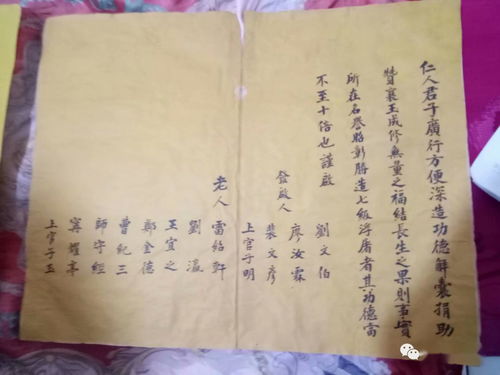 仁人君子廣行方便深造功德解囊捐助
贊襄玉成修無量之福結長生之果則事實
所在名譽昭彰勝造七級浮屠者其功德當
不至十倍也謹啟
劉文伯
廖汝霖
發啟人
裴文彥
上官子明
老人
雷紹軒
劉瀛
王宜之
鄭金德
曹紀三
師守經
寗耀亭
上官子玉